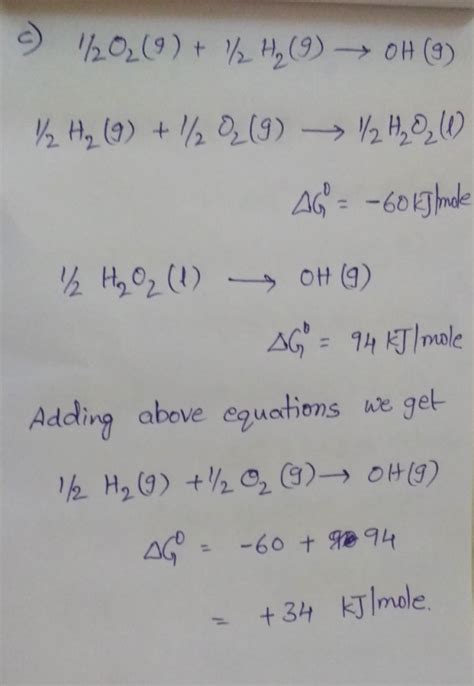 c) 1/2 O2(g) + 1/2 H2(g) → OH(g)
1/2 H2(g) + 1/2 O2(g) → 1/2 H2O2(l)
ΔG° = -60 KJ/mole
1/2 H2O2(l) → OH(g)
ΔG° = 94 KJ/mole
Adding above equations we get
1/2 H2(g) + 1/2 O2(g) → OH(g)
ΔG° = -60 + 94
= +34 KJ/mole.